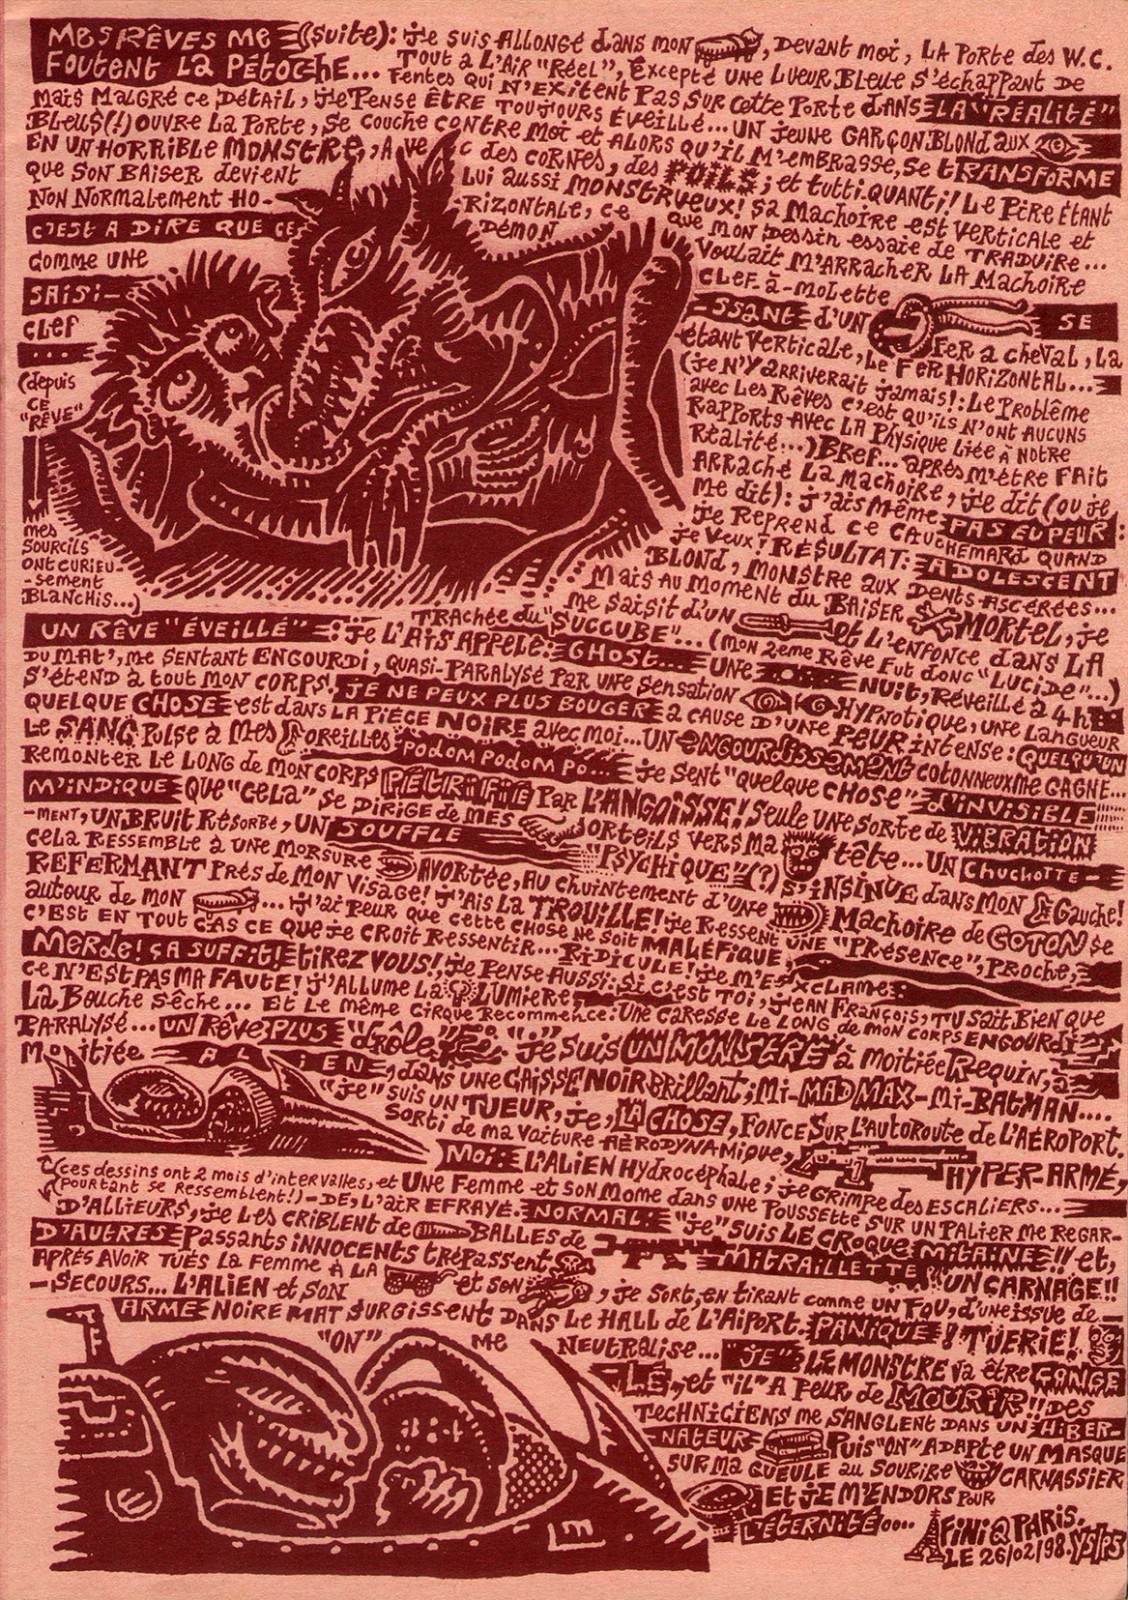 MES RÊVES ME (suite): je suis ALLONGÉ dans mon , devant moi, LA Porte des W.C.
FOUTENT LA PÉTOCHE... Tout a L'Air "Réel", Excepté une Lueur Bleue s'échappant de
Fentes qui N'EXITENT PAS SUR cette Porte dans LA "RÉALITÉ"
Mais Malgré ce Détail, je Pense être toujours Éveillé... UN jeune GARÇON Blond aux
Bleus(!) ouvre La Porte, se couche contre moi et ALORS qu'il M'embrasse, se TRANSFORME
EN UN HORRIBLE MONSTRE, Avec des CORNES, des POILS; et tutti.quanti! Le Pire Étant
que son Baiser devient Lui aussi MONSTRUEUX! Sa Machoire est Verticale et
Non Normalement HORIZONTALE, ce que mon Dessin essaie de TRADUIRE...
C'EST A DIRE QUE CE DÉMON Voulait M'ARRACHER LA Machoire
comme UNE CLEF-à-molette
SAISI-SSANT d'UN SE
clef FER a cheval, la
étant Verticale, Le FER HORIZONTAL...
(depuis
CE
"RÊVE"
mes
SOURCILS
ONT CURIEU-
-sement
BLANCHIS...)
(je N'Y ARRIVERAIT jamais!: Le Problème
avec Les Rêves c'est qu'ils N'ONT AUCUNS
RAPPORTS AVEC LA Physique Liée à Notre
Réalité...) BREF... après m'être FAIT
ARRACHÉ LA machoire, je dit (ou je
me dit): j'ais même PAS EU PEUR:
je REPREND ce CAUCHEMARD QUAND
je veux! RÉSULTAT: ADOLESCENT
BLOND, MONSTRE aux DENTS-ASCÉRÉES...
Mais au moment du BAISER MORTEL, je
me saisit d'un et L'enfonce dans LA
TRACHÉE du "SUCCUBE"... (MON 2eme Rêve Fut donc "Lucide"...)
UN RÊVE "ÉVEILLÉ": je L'AIS APPELÉ: GHOST... UNE NUIT, RÉVEILLÉ à 4h
DU MAT', me SENTANT ENGOURDI, QUASI-PARALYSÉ PAR UNE SENSATION HYPNOTIQUE, UNE LANGUEUR
S'ÉTEND à tout MON CORPS, JE NE PEUX PLUS BOUGER à CAUSE D'UNE PEUR INTENSE: QUELQU'UN
QUELQUE CHOSE est dans LA PIÈCE NOIRE avec moi... UN ENGOURDISSEMENT cotonneux me GAGNE...
Le SANG Pulse à Mes OREILLES PODOM PODOM PO... je sent "quelque CHOSE" d'INVISIBLE
REMONTER LE LONG de MON CORPS PÉTRIFIÉ PAR L'ANGOISSE! Seule UNE SORTE de VIBRATION
M'INDIQUE QUE "CELA" SE DIRIGE de MES ORTEILS VERS MA tête... UN CHUCHOTTE-
-MENT, UN BRUIT RÉSORBÉ, UN SOUFFLE "PSYCHIQUE" (?) S'INSINUE dans MON Gauche!
Cela RESSEMBLE à UNE MORSURE AVORTÉE, AU CHUINTEMENT d'UNE Machoire de COTON se
REFERMANT Près de MON Visage! J'AIS LA TROUILLE! je RESSENT UNE "Présence", Proche,
autour de MON ... j'ai Peur que cette chose Ne soit MALÉFIQUE
C'EST EN TOUT CAS CE QUE je CROIT RESSENTIR... RIDICULE! je m'EXCLAME:
Merde! ÇA SUFFIT! TIREZ VOUS! je Pense AUSSI: si c'est TOI, JEAN FRANÇOIS, TU SAIT Bien que
Ce N'EST PAS MA FAUTE! J'ALLUME La LUMIERE, UNE CARESSE Le LONG de MON CORPS ENGOURDI
La Bouche sèche... Et Le même Cirque Recommence:
PARALYSÉ... UN RÊVE PLUS "drôle": "je" suis UN MONSTRE à moitiée Requin, à
Moitiée ALIEN, dans UNE CAISSE NOIR BRILLANT; Mi-MAD MAX-Mi-BATMAN....
"je" suis UN TUEUR, je, LA CHOSE, FONCE SUR L'AUTOROUTE de L'AÉROPORT.
SORTI de ma Voiture AÉRODYNAMIQUE, HYPER-ARMÉ,
MOI: L'ALIEN Hydrocéphale; je GRIMPE des ESCALIERS...
(ces dessins ont 2 mois d'intervalles, et
pourtant se Ressemblent!)
UNE Femme et son Mome dans UNE POUSSETTE SUR UN PALIER me REGAR-
-DE, L'AIR EFRAYÉ. NORMAL: "je" SUIS LE CROQUE MITAINE!! et,
D'AILLIEURS, je LES CRIBLENT de BALLES de MITRAILLETTE "UN CARNAGE!!
D'AUTRES Passants INNOCENTS trépassent
APRÈS AVOIR TUÉS LA Femme À LA et son , je SORT, en TIRANT comme UN FOU, d'une issue de
-SECOURS... L'ALIEN et SON
ARME NOIRE MAT SURGISSENT DANS Le HALL de L'AIPORT. PANIQUE! TUERIE!
"ON" me NEUTRALISE... "JE" LE MONSTRE va être
LÉ, et "IL" A PEUR de MOURIR!! DES
TECHNICIENS me SANGLENT DANS UN HIBER-
NATEUR Puis "ON" ADAPTE UN MASQUE
SUR MA GUEULE au SOURIRE CARNASSIER
ET JE M'ENDORS POUR
L'ÉTERNITÉ....
FINI Q PARIS.
LE 26/02/98.